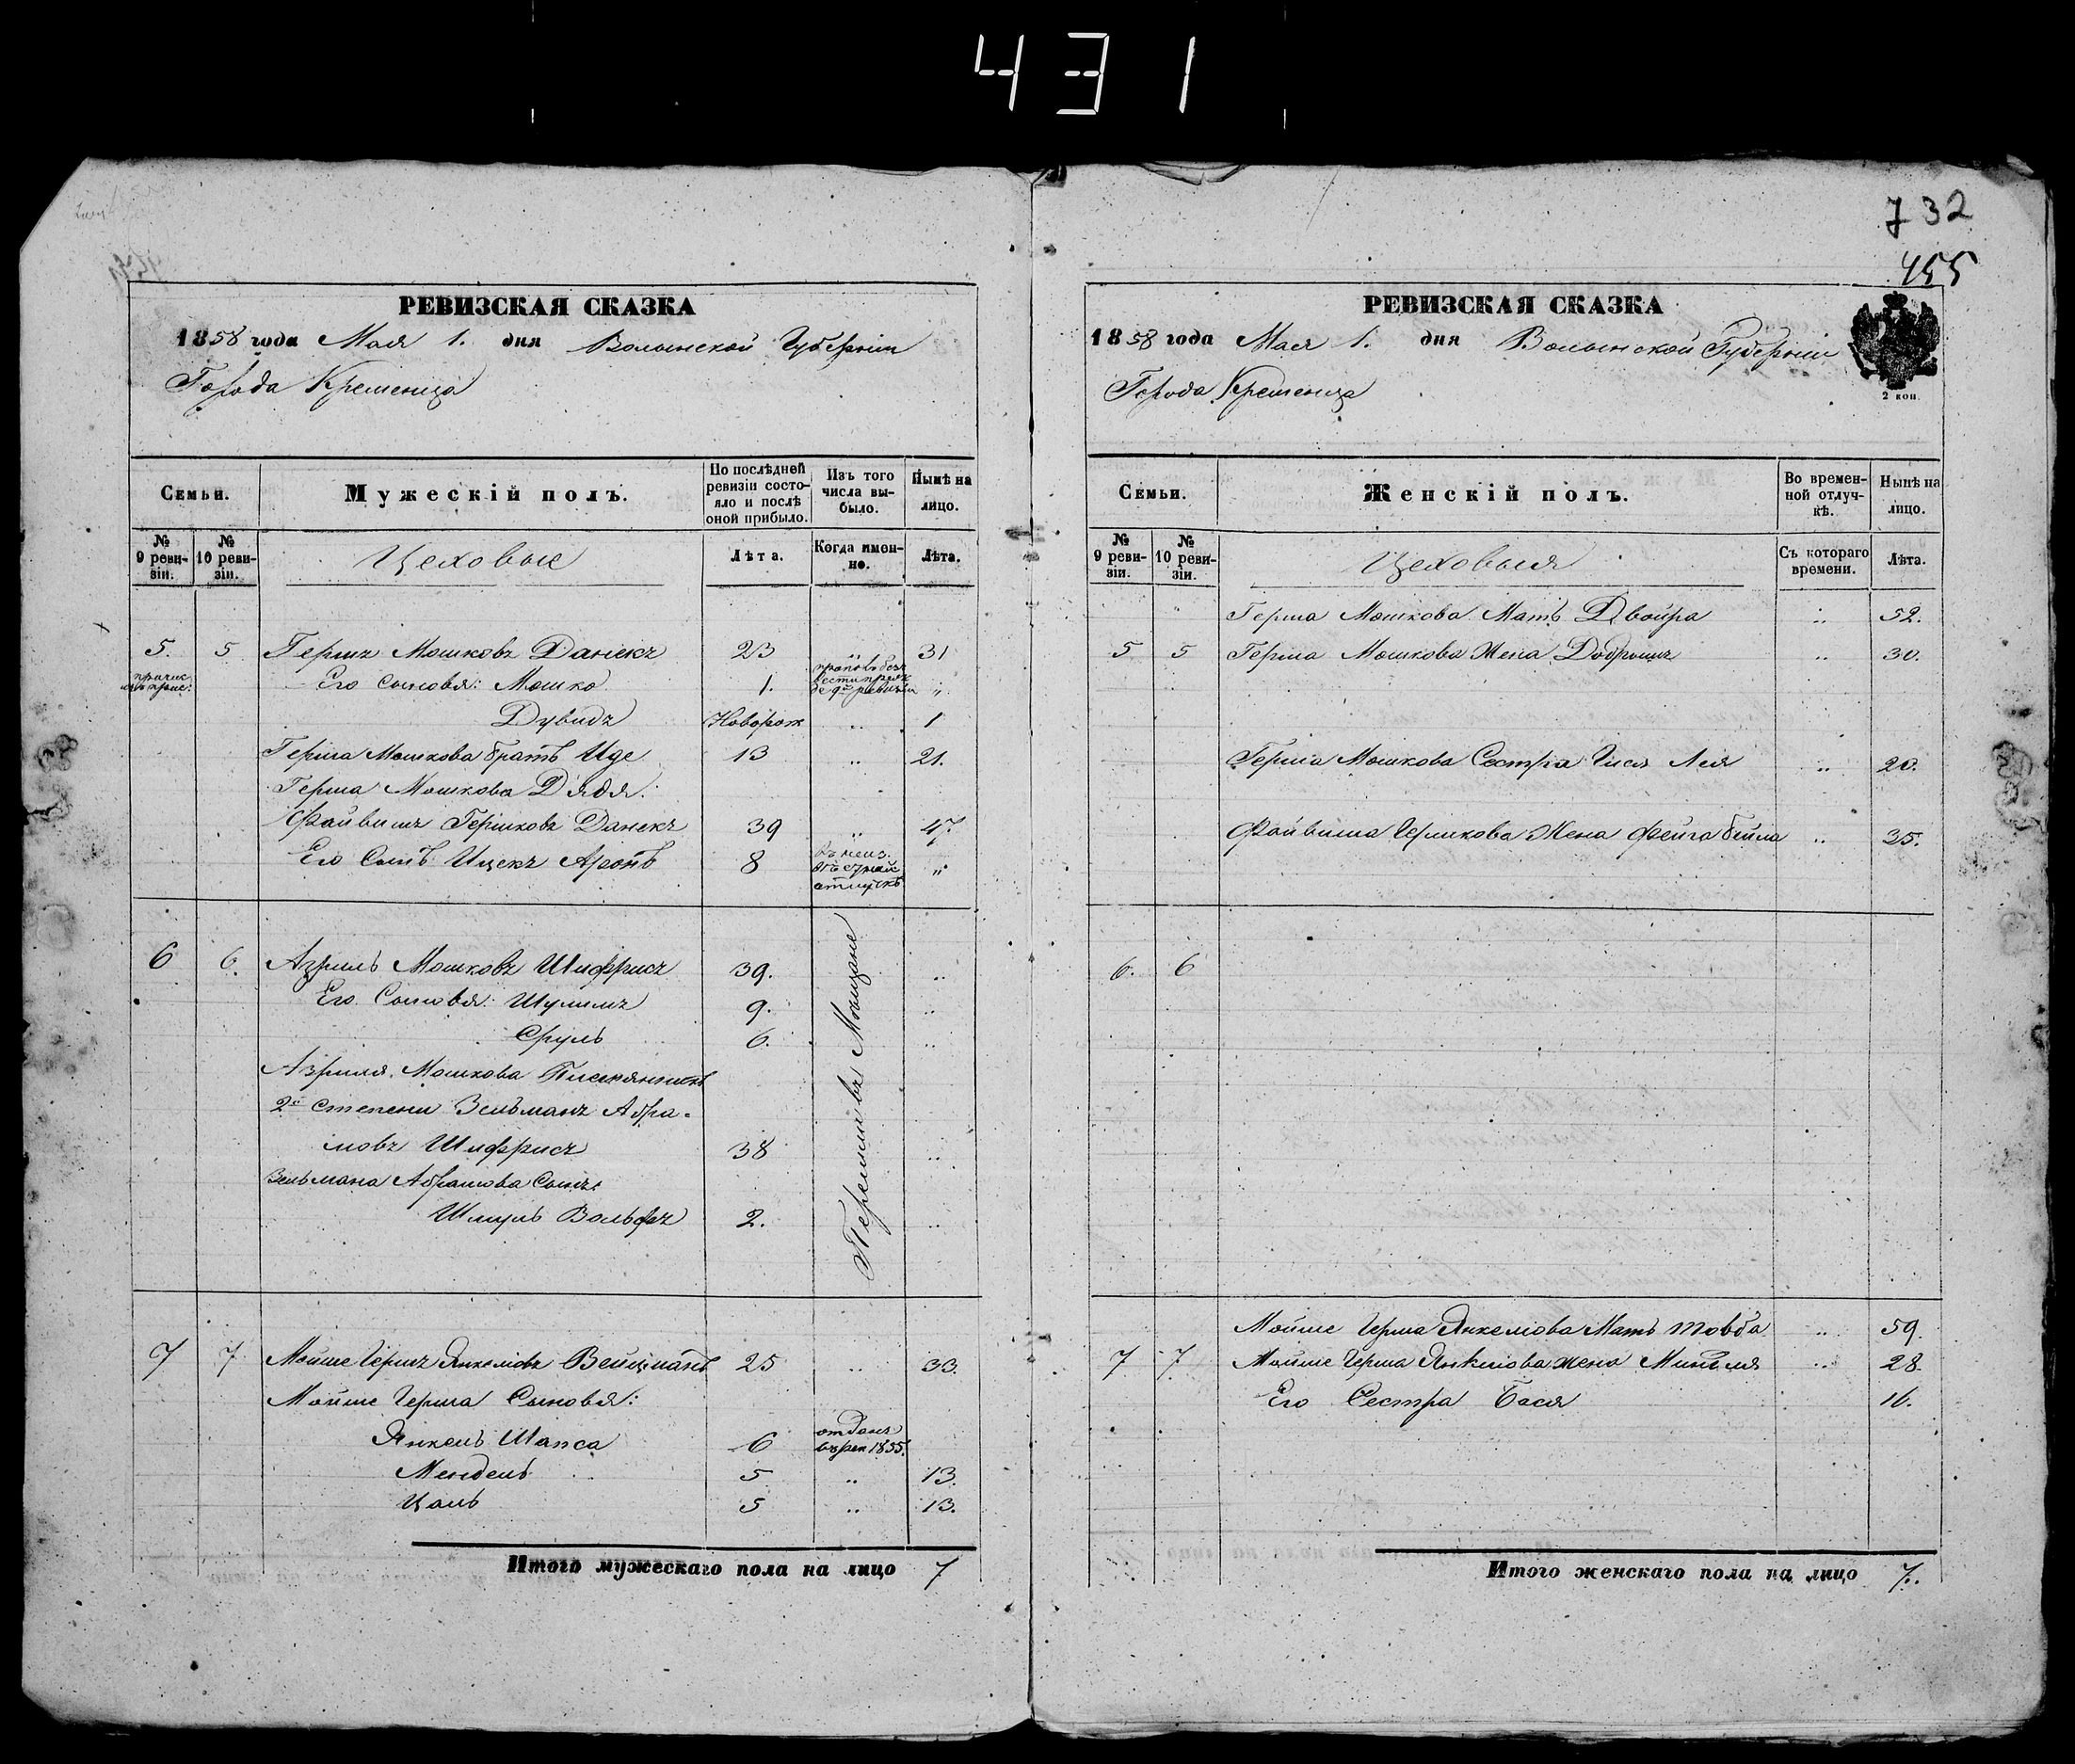 431
732
455
РЕВИЗСКАЯ СКАЗКА
1858 года Мая 1. дня Волынской Губернiи
Города Кременца
Семьи.
Мужескiй полъ.
По послѣдней ревизiи состо-
яло и послѣ
оной прибыло.
Изъ того
числа вы-
было.
Нынѣ на
лицо.
№
9 реви-
зiи.
№
10 реви-
зiи.
Цеховые
Лѣта.
Когда имен-
но.
Лѣта.
5. 5 Гершъ Мошковъ Данекъ 23 „ 31
Его сыновья: Мошко 1. „
Дувидъ Новорож „ 1
Герша Мошкова братъ Иде 13 „ 21.
Герша Мошкова Дядя:
Файвишъ Гершковъ Данекъ 39 „ 47.
Его Сынъ Ицекъ Аронъ 8 „
отлучкѣ
6 6. Азриль Мошковъ Шифрисъ 39. „
Его Сыновья: Шулимъ 9. „
Сруль 6. „
Азриля Мошкова Племянникъ
2й степени Зельманъ Абра-
мовъ Шифрисъ 38 „
Зельмана Абрамова Сынъ:
Шмуль Вольфъ 2. „
Перешли въ Мещане
7 7 Мойше Гершъ Янкелiовъ Вейцманъ 25 „ 33.
Мойше Герша Сыновья:
Янкель Шапса 6 отданъ
въ рек 1855.
Мендель 5 „ 13.
Цаль 5 „ 13.
Итого мужескаго пола на лицо 7
РЕВИЗСКАЯ СКАЗКА
1858 года Мая 1. дня Волынской Губернiи
Города Кременца
2 коп.
Семьи.
Женскiй полъ.
Во времен-
ной отлуч-
кѣ.
Нынѣ на
лицо.
№
9 реви-
зiи.
№
10 реви-
зiи.
Цеховыя
Съ котораго
времени.
Лѣта.
Герша Мошкова Мать Двойра „ 52.
5 5 Герша Мошкова Жена Добрышъ „ 30.
Герша Мошкова Сестра Лея „ 20.
Файвиша Гершкова Жена Фейга Бейла „ 35.
6. 6
Мойше Герша Янкелiова Мать Товба „ 59.
7 7. Мойше Герша Янкелiова жена Миндля „ 28.
Его Сестра Бася 16.
Итого женскаго пола на лицо 7.